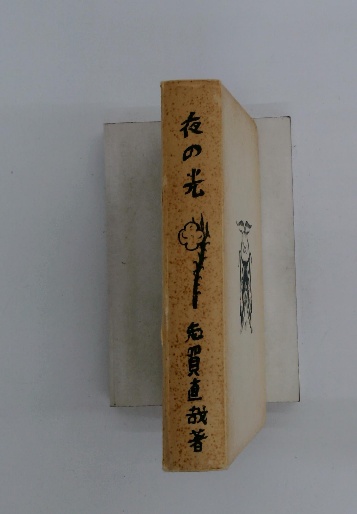 夜の光
志賀直哉著